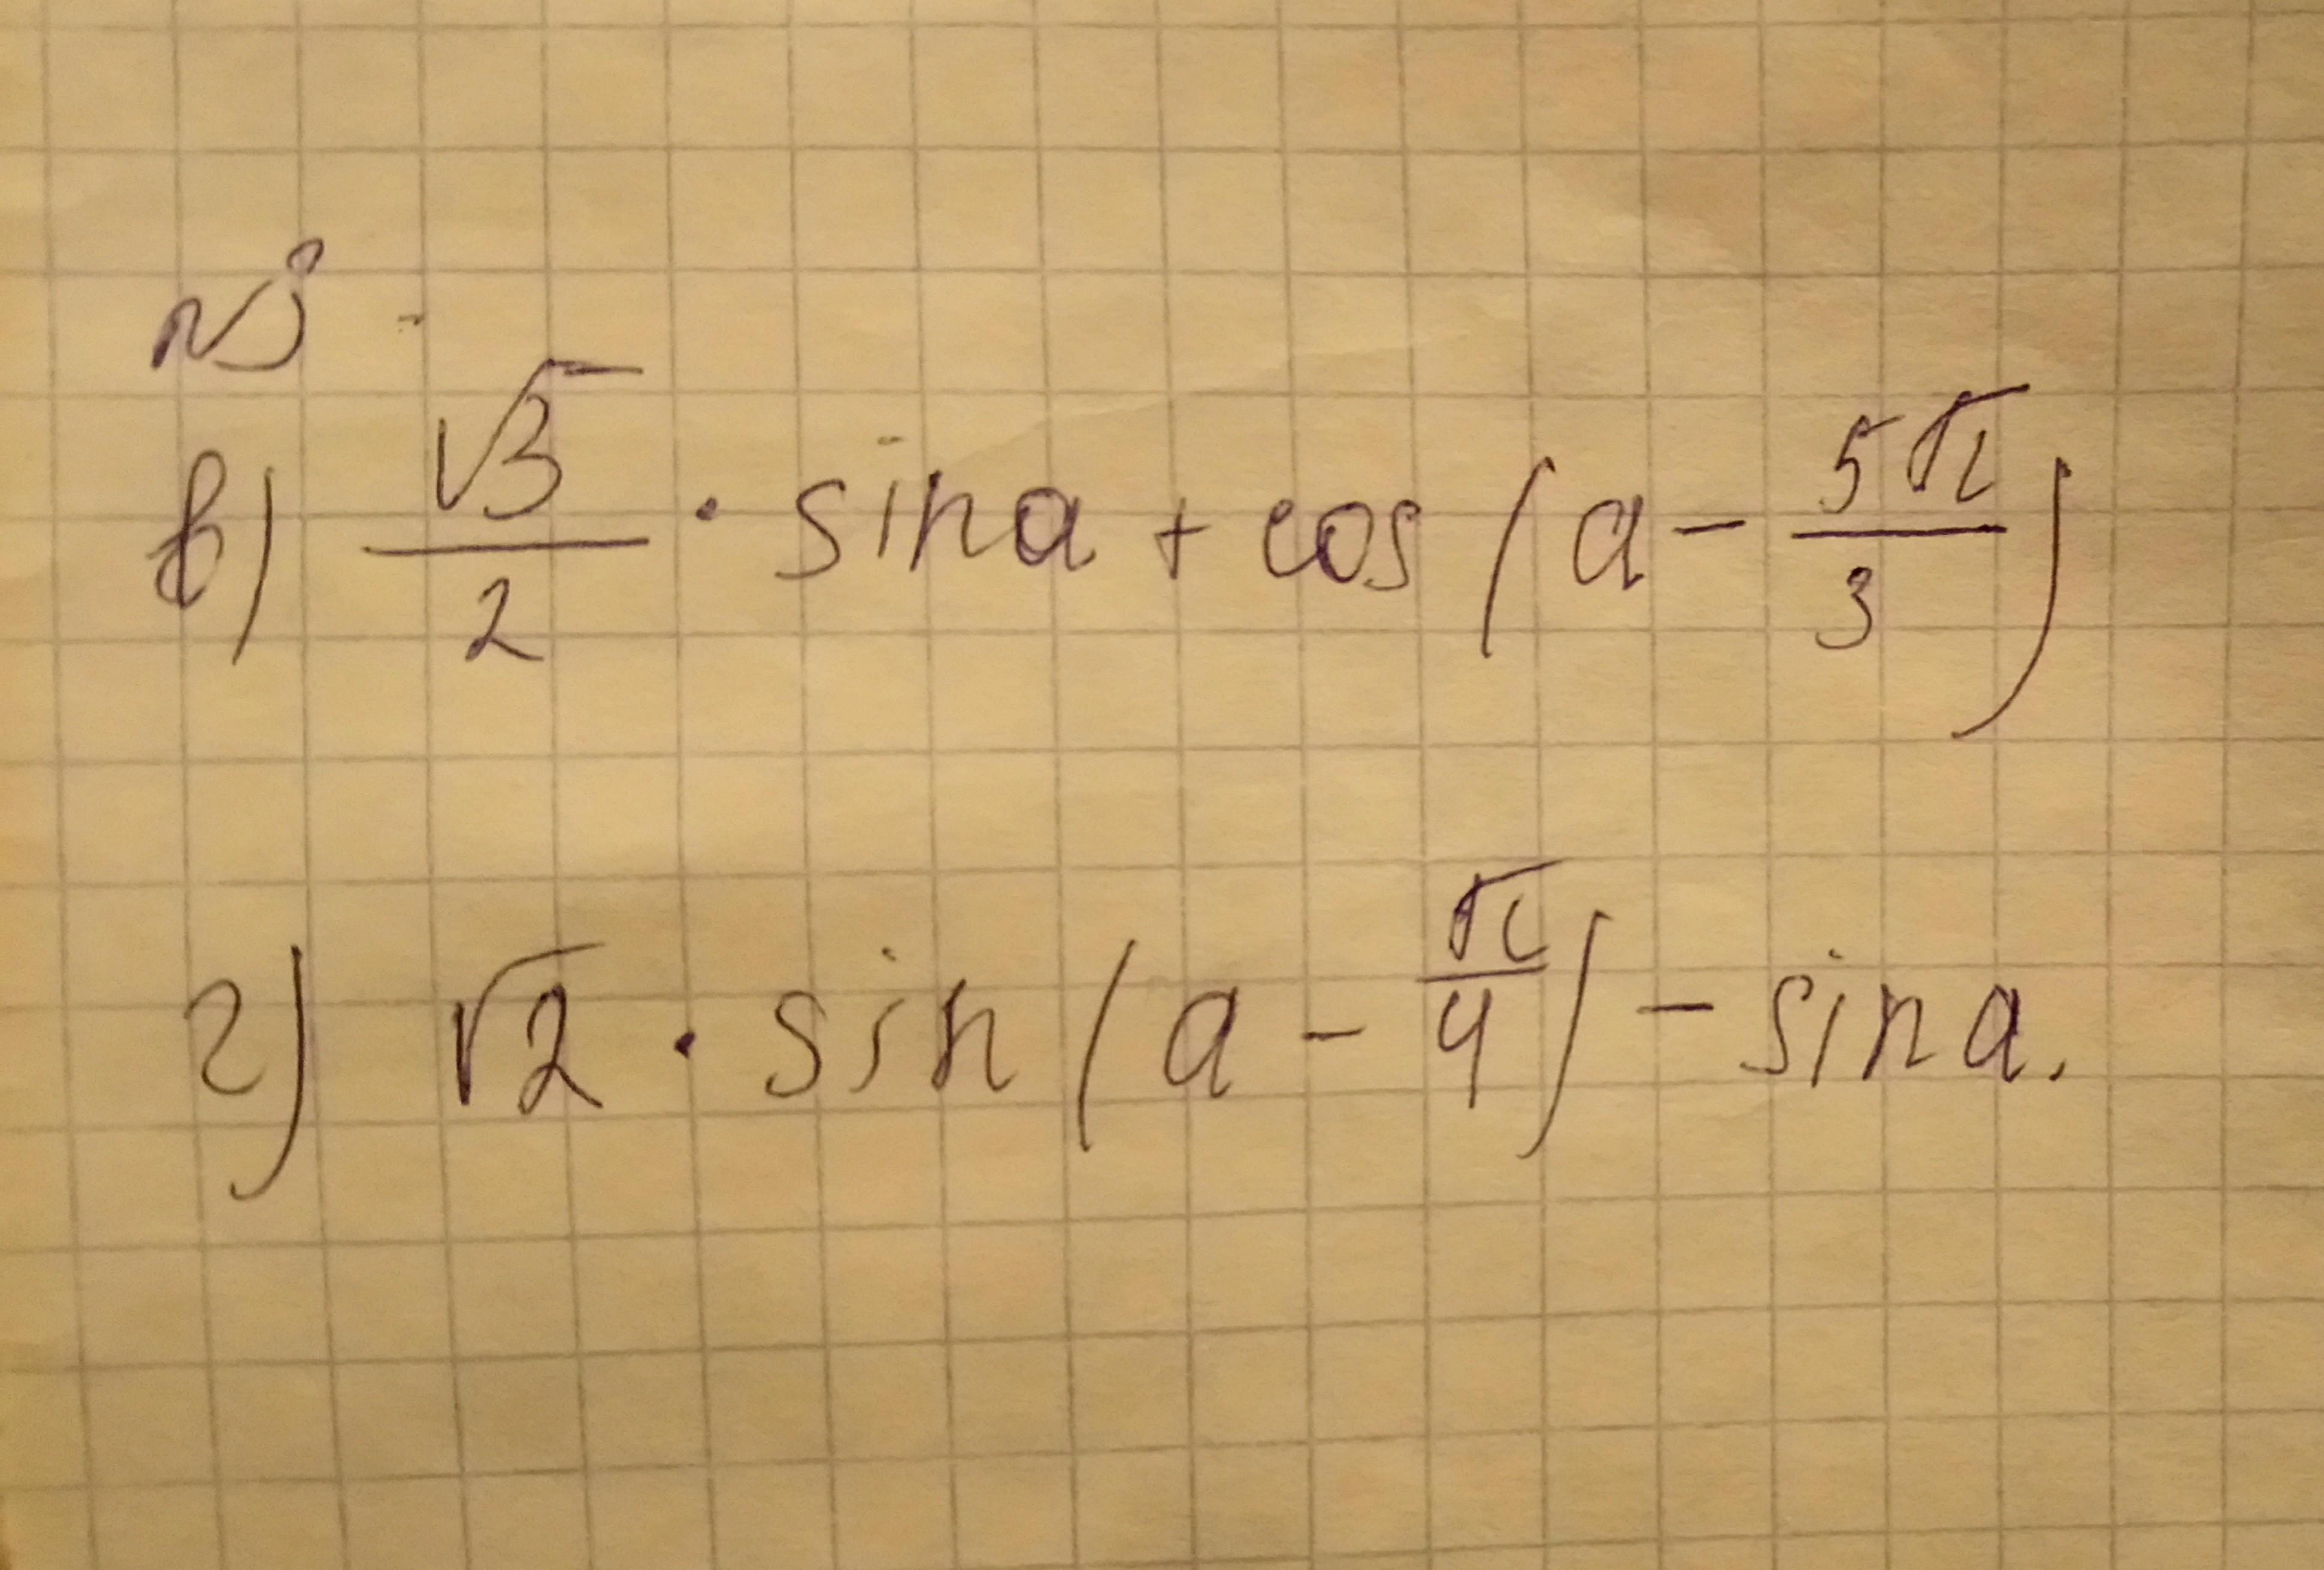 №3
в) √3/2 · sin a + cos (a - 5π/3)
г) √2 · sin (a - π/4) - sin a.